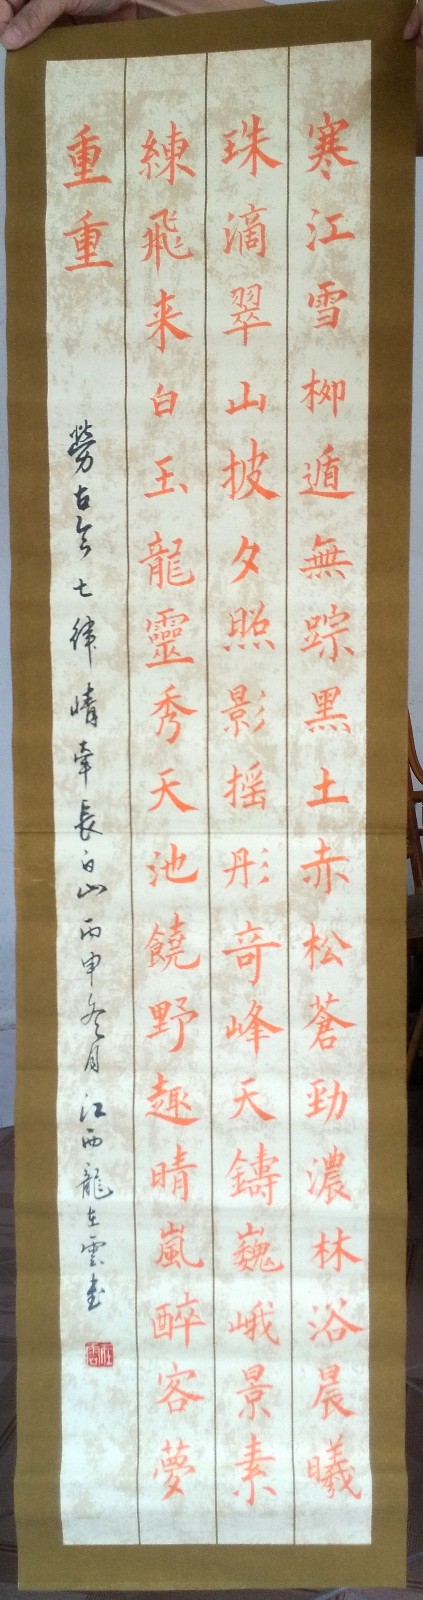 寒江雪柳遁無踪黑土赤松蒼勁濃林浴晨曦
珠滴翠山披夕照影摇彤奇峰天鑄巍峨景素
練飛来白玉龍靈秀天池饒野趣晴嵐醉客夢
重重
勞古今七律情牽長白山丙申冬月江西龍在雲書
在雲